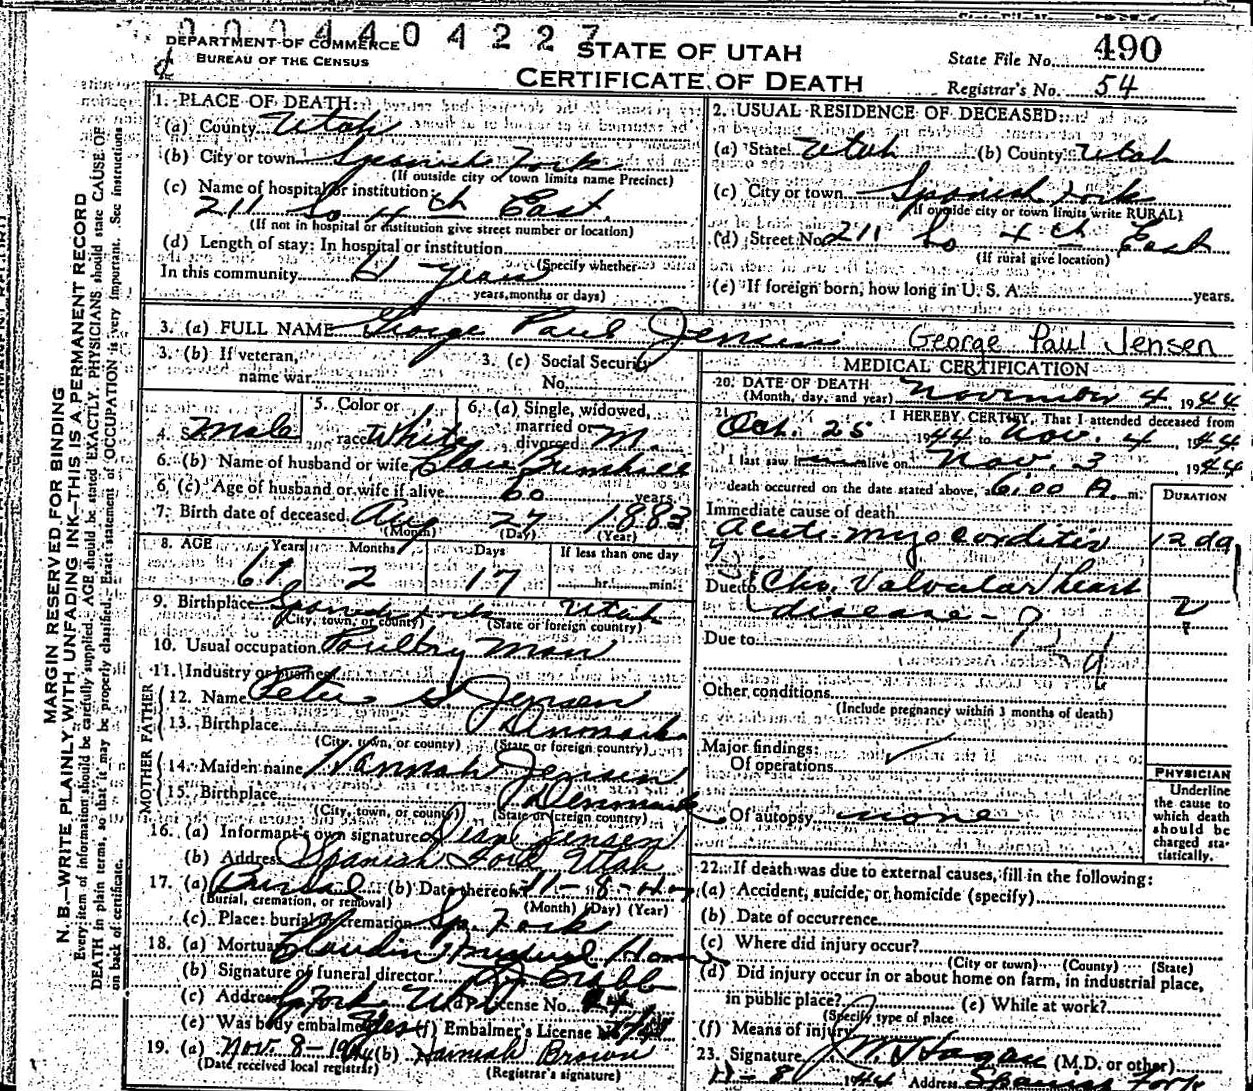 0004404227
DEPARTMENT OF COMMERCE
BUREAU OF THE CENSUS
STATE OF UTAH
CERTIFICATE OF DEATH
State File No. 490
Registrar's No. 54
MARGIN RESERVED FOR BINDING
N. B.—WRITE PLAINLY, WITH UNFADING INK—THIS IS A PERMANENT RECORD
Every item of information should be carefully supplied. AGE should be stated EXACTLY. PHYSICIANS should state CAUSE OF
DEATH in plain terms, so that it may be properly classified. Exact statement of OCCUPATION is very important. See instructions
on back of certificate.
1. PLACE OF DEATH:
(a) County Utah
(b) City or town Spanish Fork
(If outside city or town limits name Precinct)
(c) Name of hospital or institution:
211 So 4th East
(If not in hospital or institution give street number or location)
(d) Length of stay: In hospital or institution
(Specify whether
In this community 61 years
years, months or days)
2. USUAL RESIDENCE OF DECEASED:
(a) State Utah (b) County Utah
(c) City or town Spanish Fork
(If outside city or town limits write RURAL)
(d) Street No. 211 So 4th East
(If rural give location)
(e) If foreign born, how long in U. S. A. years.
3. (a) FULL NAME George Paul Jensen George Paul Jensen
3. (b) If veteran, name war
3. (c) Social Security No.
4. Male
5. Color or race White
6. (a) Single, widowed, married or divorced M.
6. (b) Name of husband or wife
6. (c) Age of husband or wife if alive 60 years
7. Birth date of deceased Aug 27 1883
(Month) (Day) (Year)
8. AGE Years Months Days If less than one day
61 2 17 hr. min.
9. Birthplace Spanish Fork Utah
(City, town, or county) (State or foreign country)
10. Usual occupation Poultry Man
11. Industry or business
FATHER
12. Name Peter Jensen
13. Birthplace Denmark
(City, town, or county) (State or foreign country)
MOTHER
14. Maiden name Hannah Jensen
15. Birthplace Denmark
(City, town, or county) (State or foreign country)
16. (a) Informant's own signature Dean Jensen
(b) Address Spanish Fork Utah
17. (a) Burial (b) Date thereof 11-8-44
(Burial, cremation, or removal) (Month) (Day) (Year)
(c) Place: burial or cremation Sp. Fork
18. (a) Mortuary Home
(b) Signature of funeral director
(c) Address Sp Fork Utah (d) License No.
(e) Was body embalmed Yes (f) Embalmer's License No.
19. (a) Nov. 8-1944 (b) Hannah Brown
(Date received local registrar) (Registrar's signature)
MEDICAL CERTIFICATION
20. DATE OF DEATH
(Month, day, and year) November 4 1944
21. I HEREBY CERTIFY, That I attended deceased from
Oct. 25 1944 to Nov. 4 1944
I last saw him alive on Nov. 3 1944
death occurred on the date stated above, at 6:00 A. m.
DURATION
Immediate cause of death
Acute myocarditis 12 da
Due to Chr. Valvular heart
disease - ?
Due to
Other conditions
(Include pregnancy within 3 months of death)
Major findings:
Of operations
Of autopsy none
PHYSICIAN
Underline
the cause to
which death
should be
charged sta-
tistically.
22. If death was due to external causes, fill in the following:
(a) Accident, suicide, or homicide (specify)
(b) Date of occurrence
(c) Where did injury occur?
(City or town) (County) (State)
(d) Did injury occur in or about home on farm, in industrial place,
in public place? (e) While at work?
(Specify type of place
(f) Means of injury
23. Signature (M.D. or other)
11-8 1944 Address Spanish Fork